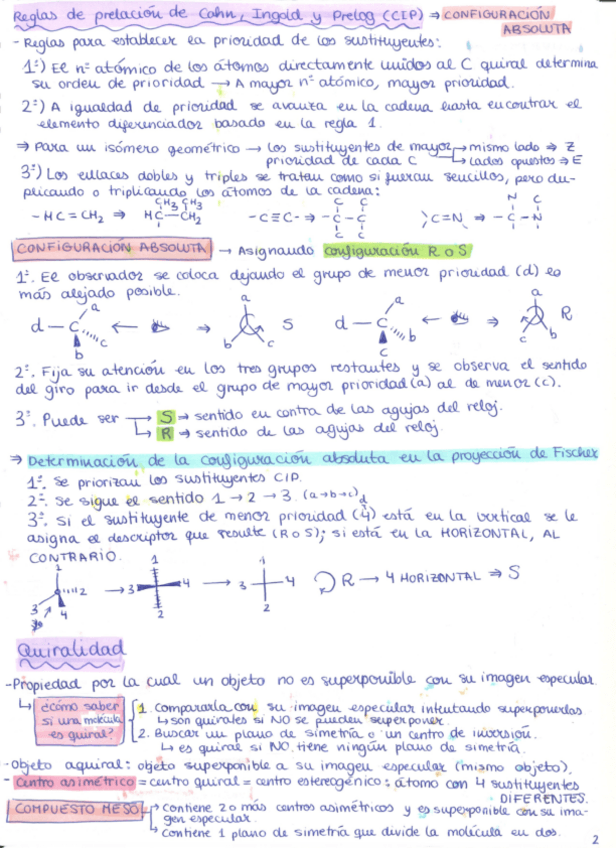 Reglas de prelación de Cahn, Ingold y Prelog (CIP) ⇒ CONFIGURACIÓN
ABSOLUTA
- Reglas para establecer la prioridad de los sustituyentes:
1º) El nº atómico de los átomos directamente unidos al C quiral determina
su orden de prioridad → A mayor nº atómico, mayor prioridad.
2º) A igualdad de prioridad se avanza en la cadena hasta encontrar el
elemento diferenciador basado en la regla 1.
⇒ Para un isómero geométrico → los sustituyentes de mayor → mismo lado ⇒ Z
prioridad de cada C → lados opuestos ⇒ E
3º) Los enlaces dobles y triples se tratan como si fueran sencillos, pero du-
plicando o triplicando los átomos de la cadena:
CH3 CH3 C C N C
- HC=CH2 ⇒ HC-CH2 -C≡C- ⇒ -C-C- >C=N ⇒ -C-N
C C
CONFIGURACIÓN ABSOLUTA → Asignando configuración R o S
1º. El observador se coloca dejando el grupo de menor prioridad (d) lo
más alejado posible.
a a a a
d-C ← ⇒ S d-C ← ⇒ R
c b c b b c
b c
2º. Fija su atención en los tres grupos restantes y se observa el sentido
del giro para ir desde el grupo de mayor prioridad (a) al de menor (c).
3º. Puede ser → S ⇒ sentido en contra de las agujas del reloj.
→ R ⇒ sentido de las agujas del reloj.
⇒ Determinación de la configuración absoluta en la proyección de Fischer
1º. Se priorizan los sustituyentes CIP.
2º. Se sigue el sentido 1→2→3. (a→b→c)
d
3º. Si el sustituyente de menor prioridad (4) está en la vertical se le
asigna el descriptor que resulte (R o S); si está en la HORIZONTAL, AL
CONTRARIO.
1 1 1
2 → 3 4 → 3 4 R → 4 HORIZONTAL ⇒ S
3 4 2 2
Quiralidad
- Propiedad por la cual un objeto no es superponible con su imagen especular
¿cómo saber 1. Compararla con su imagen especular intentando superponerlas
si una molécula ↳ son quirales si NO se pueden superponer.
es quiral? 2. Buscar un plano de simetría o un centro de inversión.
↳ es quiral si NO tiene ningún plano de simetría.
- Objeto aquiral: objeto superponible a su imagen especular (mismo objeto).
- Centro asimétrico = centro quiral = centro estereogénico: átomo con 4 sustituyentes
DIFERENTES.
COMPUESTO MESO → Contiene 2 o más centros asimétricos y es superponible con su ima-
gen especular.
→ Contiene 1 plano de simetría que divide la molécula en dos.
2